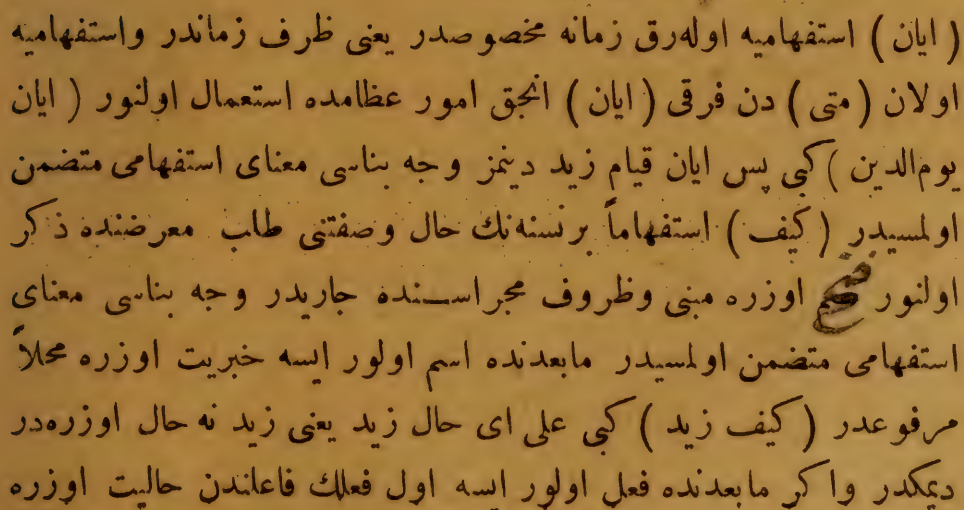 ( ایان ) استفهامیه اوله‌رق زمانه مخصوصدر یعنی ظرف زماندر واستفهامیه
اولان ( متی ) دن فرقی ( ایان ) انجق امور عظامده استعمال اولنور ( ایان
یوم‌الدین ) کبی پس ایان قیام زید دینمز وجه بناسی معنای استفهامی متضمن
اولمسیدر ( کیف ) استفهاماً بر نسنه‌نك حال وصفتنی طلب معرضنده ذکر
اولنور اوزره مبنی وظروف مجراسنده جاریدر وجه بناسی معنای
استفهامی متضمن اولمسیدر مابعدنده اسم اولور ایسه خبریت اوزره محلاً
مرفوعدر ( کیف زید ) کبی علی ای حال زید یعنی زید نه حال اوزره‌در
دیمکدر واکر مابعدنده فعل اولور ایسه اول فعلك فاعلندن حالیت اوزره